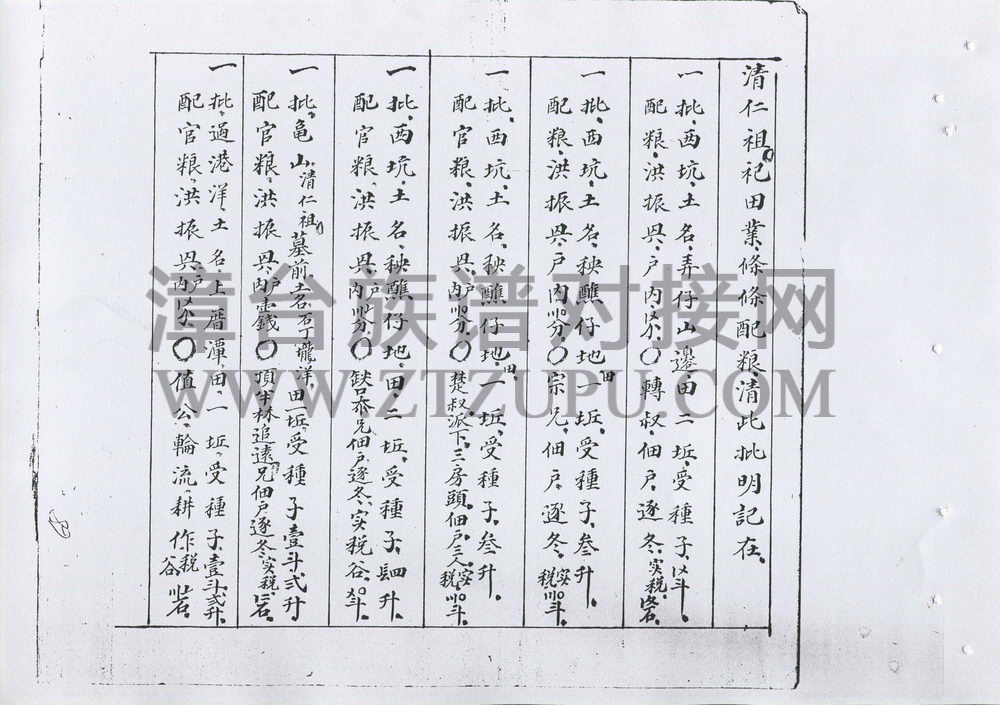 清仁祖祀田業條條配粮清此批明記在
一批西坑土名弄仔山邊田二坵受種子
配粮洪振興戶内〇轉叔佃戶逐冬实税
一批西坑土名秧醮仔地田一坵受種子叁升
配粮洪振興戶内〇宗兄佃戶逐冬实税斗
一批西坑土名秧醮仔地田一坵受種子叁升
配官粮洪振興戶内〇楚叔派下三房頭佃戶三人实税斗
一批西坑土名秧醮仔地田二坵受種子四升
配官粮洪振興戶内〇兄佃戶逐冬实税谷斗
一批龟山清仁祖墓前土名洋田一坵受種子壹斗弍升
配官粮洪振興戶内壹錢〇頂半林追遠兄佃戶逐冬实税
一批過港洋土名上厝潭田一坵受種子壹斗弍升
配官粮洪振興戶内〇值公輪流耕作税谷
漳台族谱对接网
WWW.ZTZUPU.COM